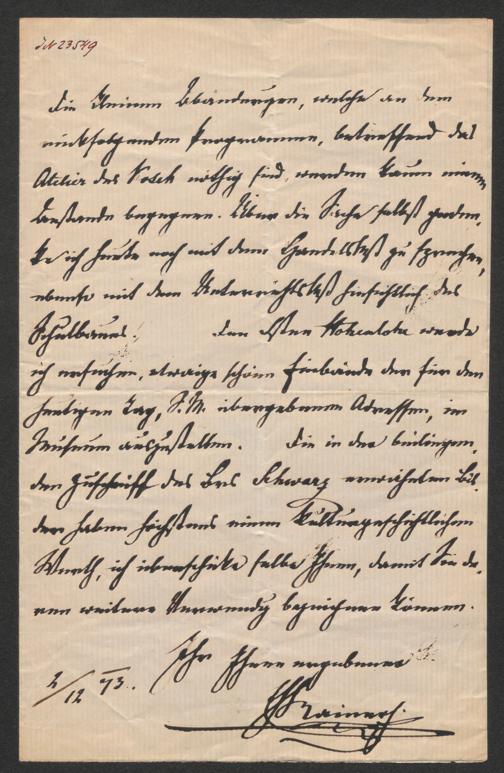 IN 23549
Die kleinen Abänderungen, welche an dem
rückfolgenden Programme, betreffend das
Atelier des Kosch nöthig sind, werden kaum einem
Anstande begegnen. Über die Sache selbst geden-
ke ich heute noch mit dem Handels zu sprechen,
ebenso mit dem Unterrichts hinsichtlich des
Schulbaues. Den werde
ich ersuchen, etwaige schöne Einbände der für den
heutigen Tag, S. M. übergebenen Adressen, im
Museum auszustellen. Die in der beiliegen-
den Zuschrift des Schwarz erwähnten Bil-
der haben höchstens einen kulturgeschichtlichen
Werth, ich überschicke selbe Ihnen, damit Sie de-
ren weitere Verwendg bezeichnen können.
Ihr Ihnen ergebener
2/12 73.
Rainer